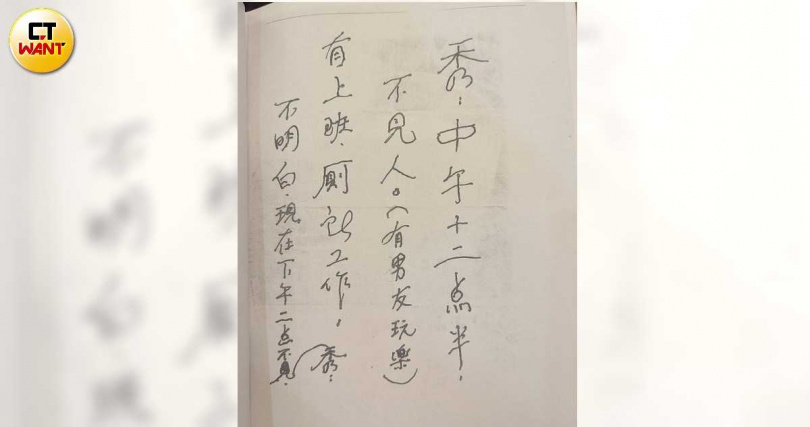 CT
WANT
秀:中午十二点半.
不見人。(有男友玩樂)
有上班.厠所工作.秀.
不明白.現在下午二点不見.